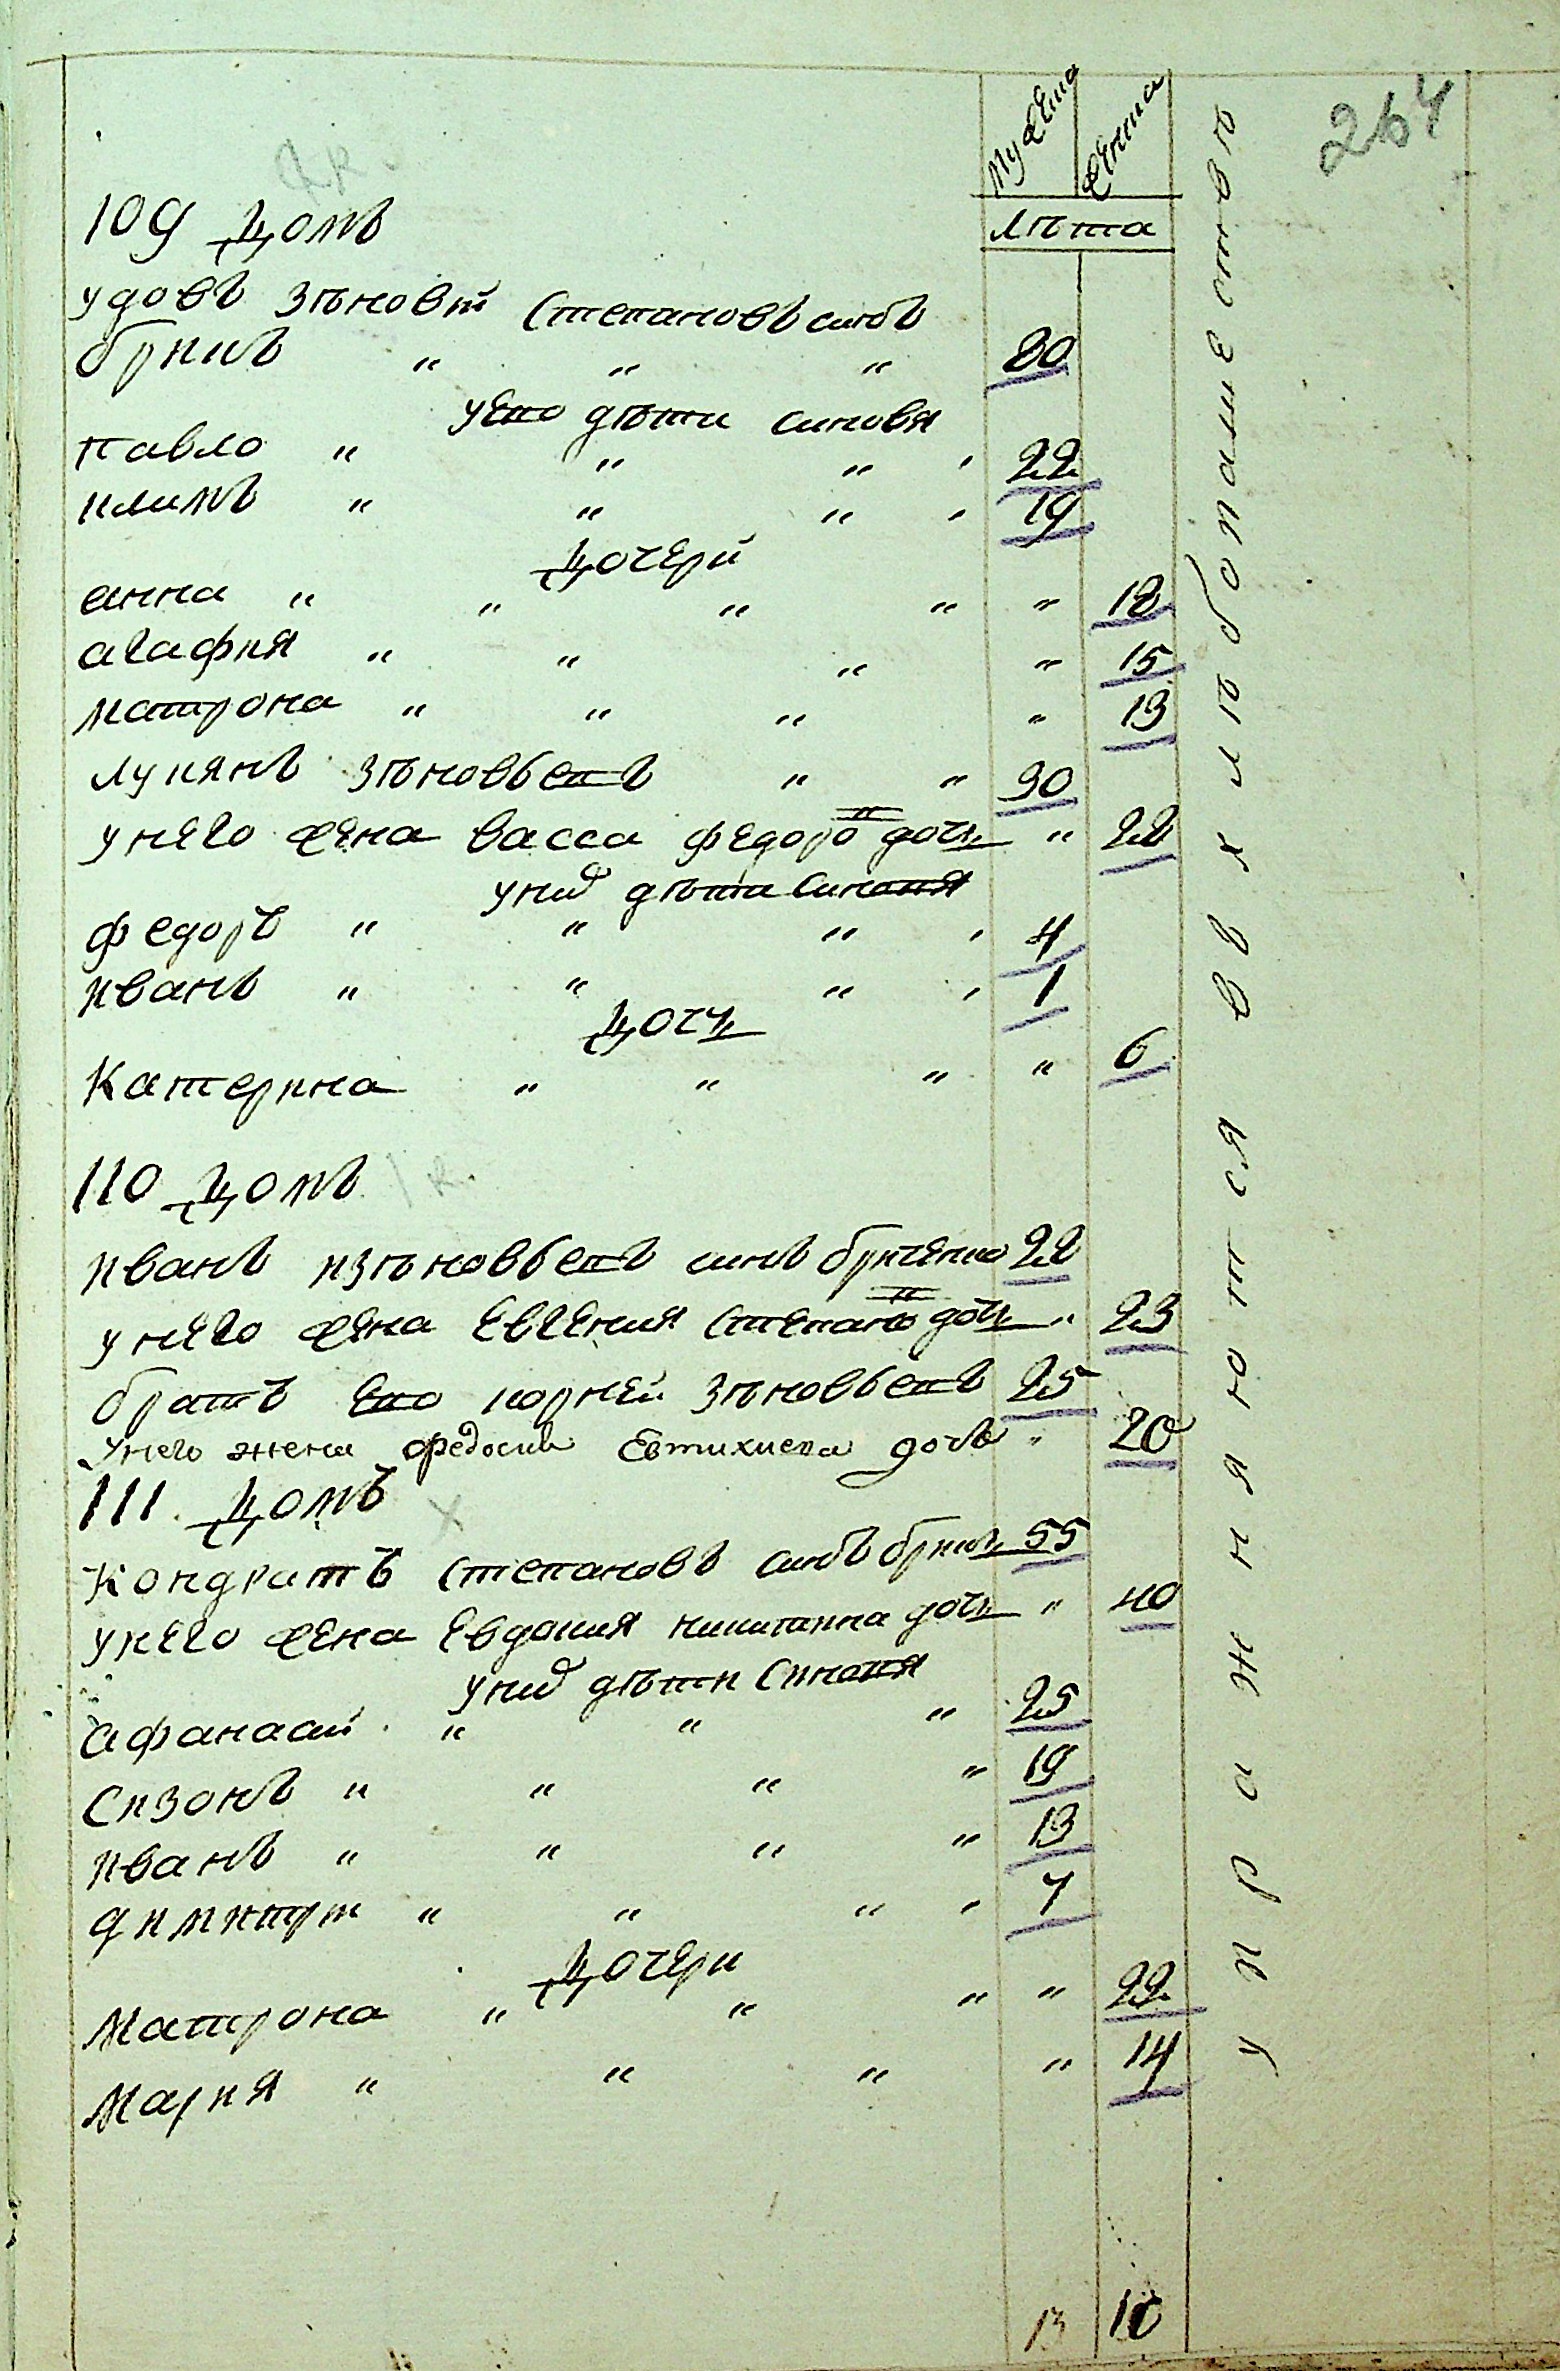 264
мужеска женска
лѣта
109 домъ
удовъ зѣновѣй Степановъ синъ
брикъ " " " 80
унего дѣти синовя
павло " " " 22
климъ " " " 19
дочери
анна " " " " " 18
агафия " " " " 15
матрона " " " " 13
лукянъ зѣновьевъ " " 30
унего жена васса федоровa дочь " 22
унихъ дѣти синовя
федоръ " " " 4
иванъ " " " 1
дочь
Катерина " " " " 6
110 домъ
иванъ изѣновьевъ синъ бриченко 22
унего жена евгения степанова дочь " 23
братъ его корней зѣновьевъ 25
унего жена федосия Евтихиева дочь " 20
111 домъ
Кондратъ Степановъ синъ брикъ 55
унего жена Евдокия никитина дочь " 40
унихъ дѣти Синовя
афанасий " " " 25
Сизонъ " " " 19
иванъ " " " 13
димитри " " " 7
дочери
Матрона " " " " 22
Мария " " " " 14
13 10
упражняются въ хлѣбопашествѣ